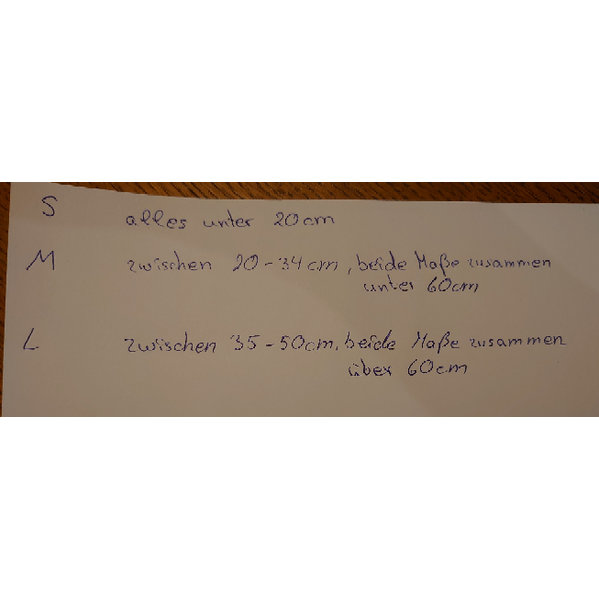 S alles unter 20cm
M zwischen 20-34cm, beide Maße zusammen
unter 60cm
L zwischen 35-50cm, beide Maße zusammen
über 60cm